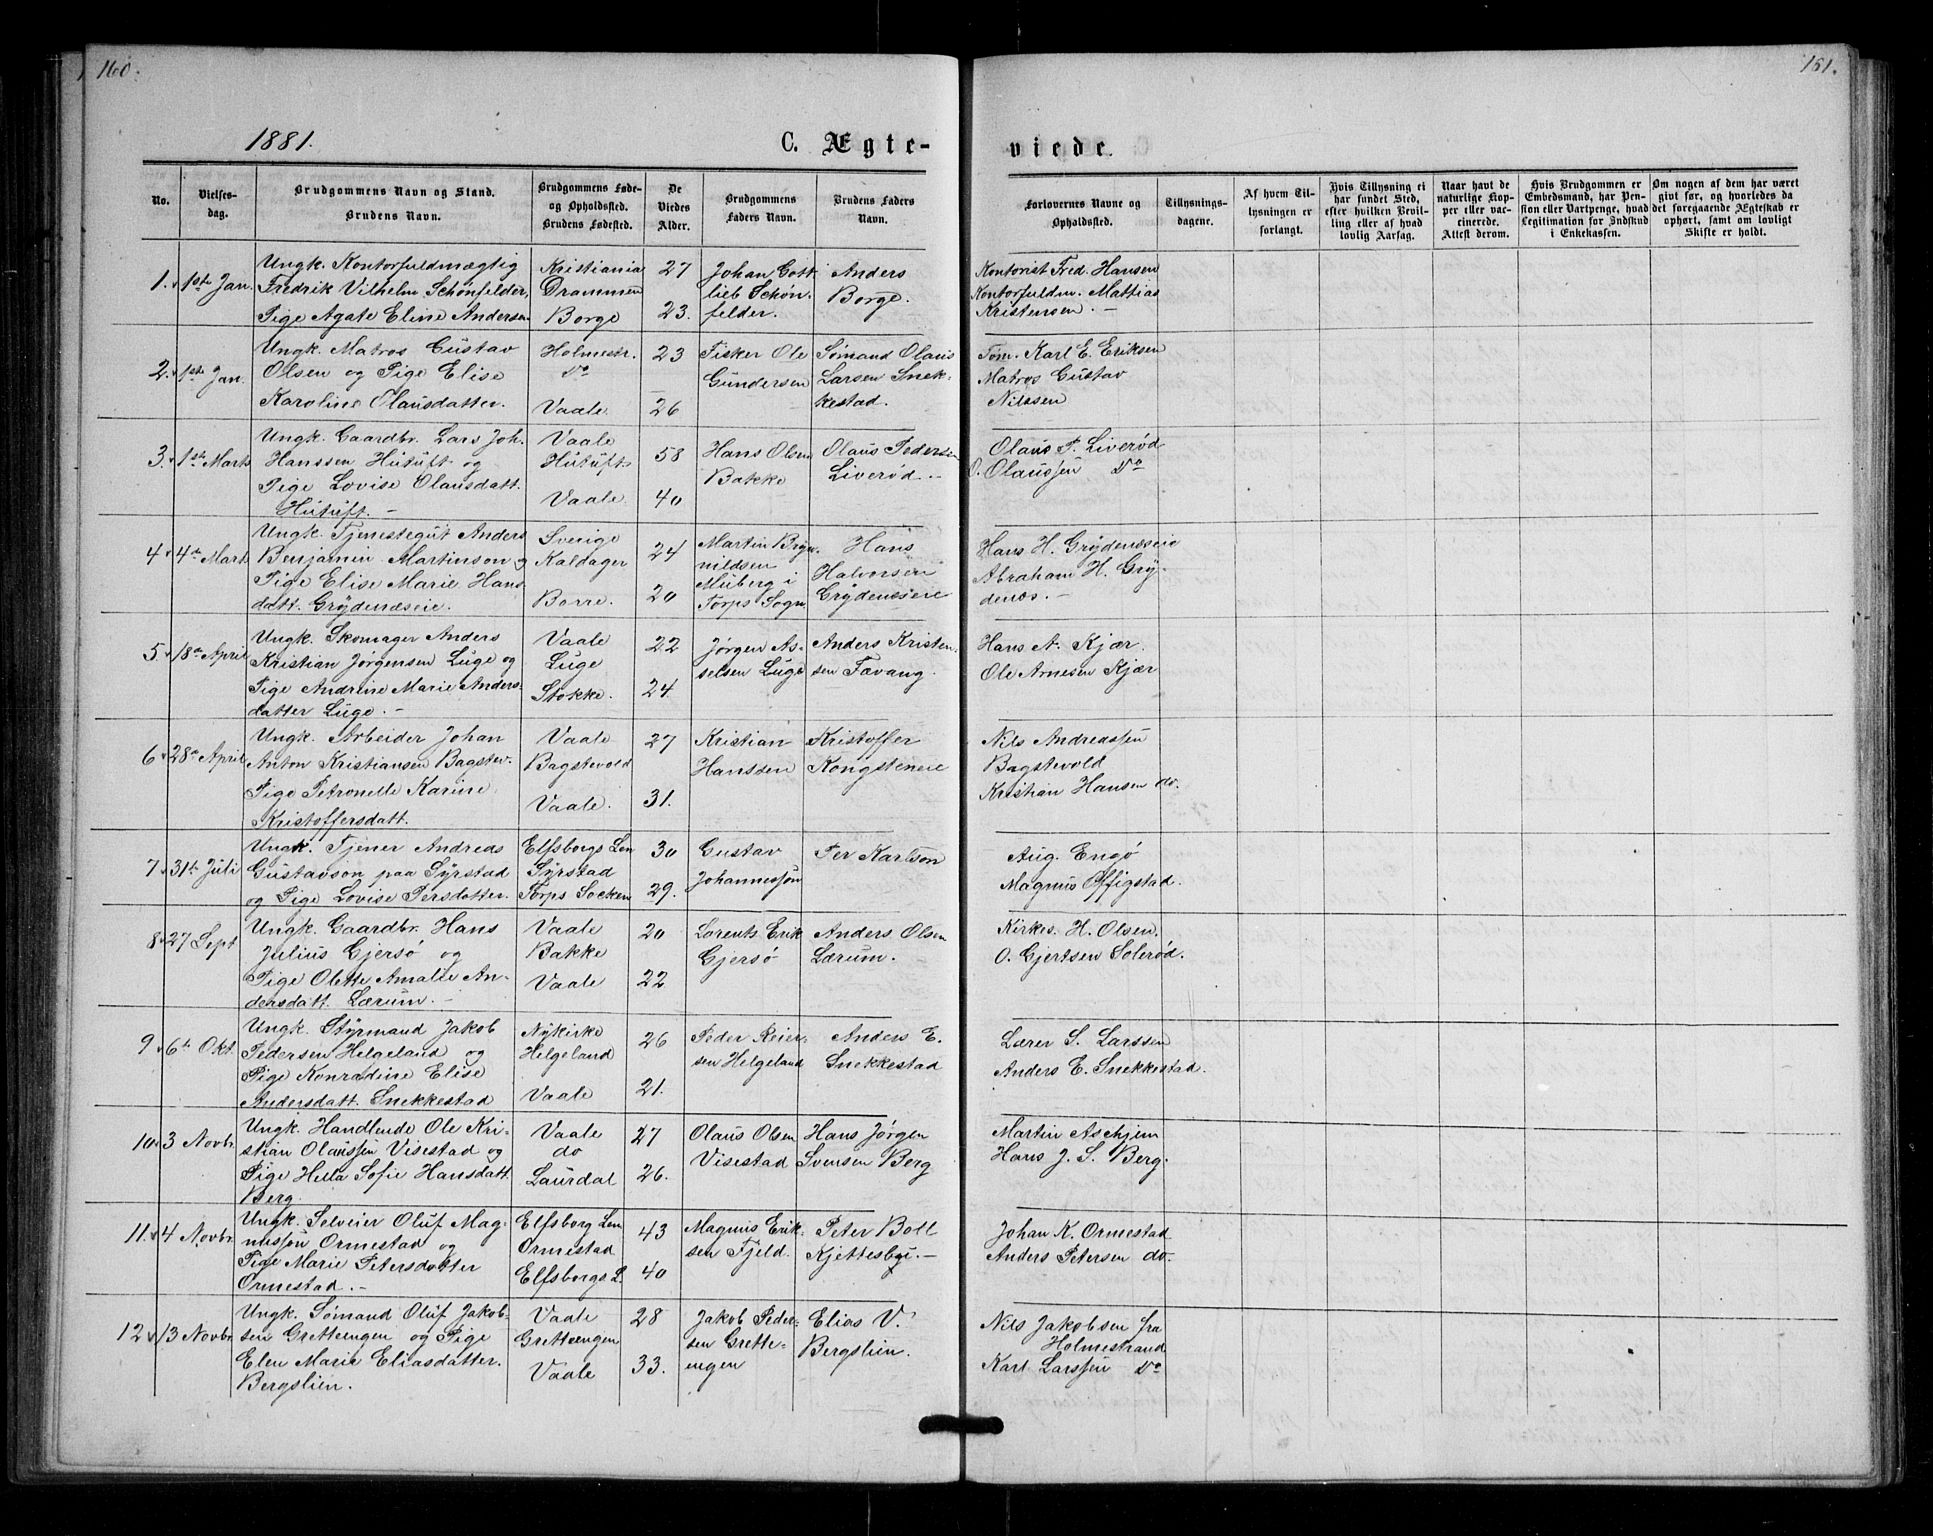 160.
161.
1881.
C. Ægte-
viede.
No.
Vielses-
dag.
Brudgommens Navn og Stand.
Brudens Navn.
Brudgommens Føde-
og Opholdssted.
Brudens Fødested.
De
Viedes
Alder.
Brudgommens
Faders Navn.
Brudens Faders
Navn.
Forlovernes Navne og
Opholdssted.
Tillysnings-
dagene.
Af hvem Til-
lysningen er
forlangt.
Hvis Tillysning ei
har fundet Sted,
efter hvilken Bevil-
ling eller af hvad
lovlig Aarsag.
Naar havt de
naturlige Kop-
per eller vac-
cinerede.
Attest derom.
Hvis Brudgommen er
Embedsmand, har Pen-
sion eller Vartpenge, hvad
Legitimation for Indskud
i Enkekassen.
Om nogen af dem har været
givt før, og hvorledes da
det foregaaende Ægteskab er
ophørt, samt om lovligt
Skifte er holdt.
1. 1ste Jan.
Ungk. Kontorfuldmægtig
Fredrik Vilhelm Schönfelder,
Pige Agate Eline Andersen
Kristiania
Drammen
Borge
27
23.
Johan Gott
lieb Schön-
felder.
Anders
Borge.
Kontorist Fred. Hansen
Kontorfuldm. Mathias
Kristensen. -
2. 1ste Jan.
Ungk. Matros Gustav
Olsen og Pige Elise
Karoline Olausdatter.
Holmestr.
do
Vaale
23
26
Fisker Ole
Gundersen
Sømand Olaus
Larsen Snek-
kestad.
Tøm. Karl E. Eriksen
Matros Gustav
Nilssen
3. 1ste Marts
Ungk. Gaardbr. Lars Joh.
Hanssen Hutuft og
Pige Lovise Olausdatt.
Hutuft. -
Vaale
Hutuft
Vaale
58
40
Hans Olsen
Bakke
Olaus Pedersen
Liverød. -
Olaus P. Liverød
O. Olaussen do
4 4de Marts
Ungk. Tjenestegut Anders
Benjamin Martinson og
Pige Elise Marie Hans
datt. Grydenæseie.
Sverige
Kaldager
Borre.
24
20
Martin Bryn-
nildsen
Muberg i
Torps Sogn
Hans
Halvorsen
Grydenæseie
Hans H. Grydenæseie
Abraham H. Gry-
denæs. -
5 18de April
Ungk. Skomager Anders
Kristian Jørgensen Luge og
Pige Andrine Marie Anders-
datter Luge. -
Vaale
Luge
Stokke.
22
24.
Jørgen As-
selsen Luge
Anders Kristen-
sen Fævang.
Hans A. Kjær.
Ole Arnesen Kjær
6 28de April
Ungk. Arbeider Johan
Anton Kristiansen Bagstev-
Pige Petronelle Karine
Kristoffersdatt.
Vaale
Bagstevold
Vaale.
27
31.
Kristian
Hanssen
Kristoffer
Kongsteneie
Nils Andreassen
Bagstevold
Kristian Hansen do.
7 31te Juli
Ungk. Tjener Andreas
Gustavson paa Syrstad
og Pige Lovise Persdatter.
Elfsborgs Len
Syrstad
Torps Socken
30
29.
Gustav
Johannesson
Per Karlson
Aug. Engø
Magnus Offigstad.
8 27 Sept
Ungk. Gaardbr. Hans
Julius Gjersø og
Pige Olette Amalie An-
dersdatt. Lærum. -
Vaale
Bakke
Vaale
20
22
Lorents Erik
Gjersø
Anders Olsen
Lærum.
Kirkes. H. Olsen.
O. Gjertsen Solerød.
9 6te Okt.
Ungk. Styrmand Jakob
Pedersen Helgeland og
Pige Konradine Elise
Andersdatt. Snekkestad
Nykirke
Helgeland
Vaale
26
21.
Peder Reier-
sen Helgeland
Anders E.
Snekkestad
Lærer S. Larssen
Anders E. Snekkestad.
10 3 Novbr.
Ungk. Handlende Ole Kri-
stian Olaussen Visestad og
Pige Hella Sofie Hansdatt.
Berg.
Vaale
do
Laurdal
27
26.
Olaus Olsen
Visestad
Hans Jørgen
Svensen Berg
Martin Aschjem
Hans J. S. Berg.
11. 4 Novbr.
Ungk. Selveier Oluf Mag-
nussen Ormestad og
Pige Marie Petersdatter
Ormestad. -
Elfsborg Len
Ormestad
Elfsborgs L.
43
40
Magnus Erik-
sen Fjeld.
Peter Boll
Kjettesbyi. -
Johan K. Ormestad
Anders Petersen do.
12 13 Novbr.
Ungk. Sømand Oluf Jakob-
sen Gretteengen og Pige
Elen Marie Eliasdatter.
Bergslien.
Vaale
Gretteengen
Vaale
28
33.
Jakob Peder-
sen Grette-
engen
Elias V.
Bergslien.
Nils Jakobsen fra
Holmestrand
Karl Larssen do